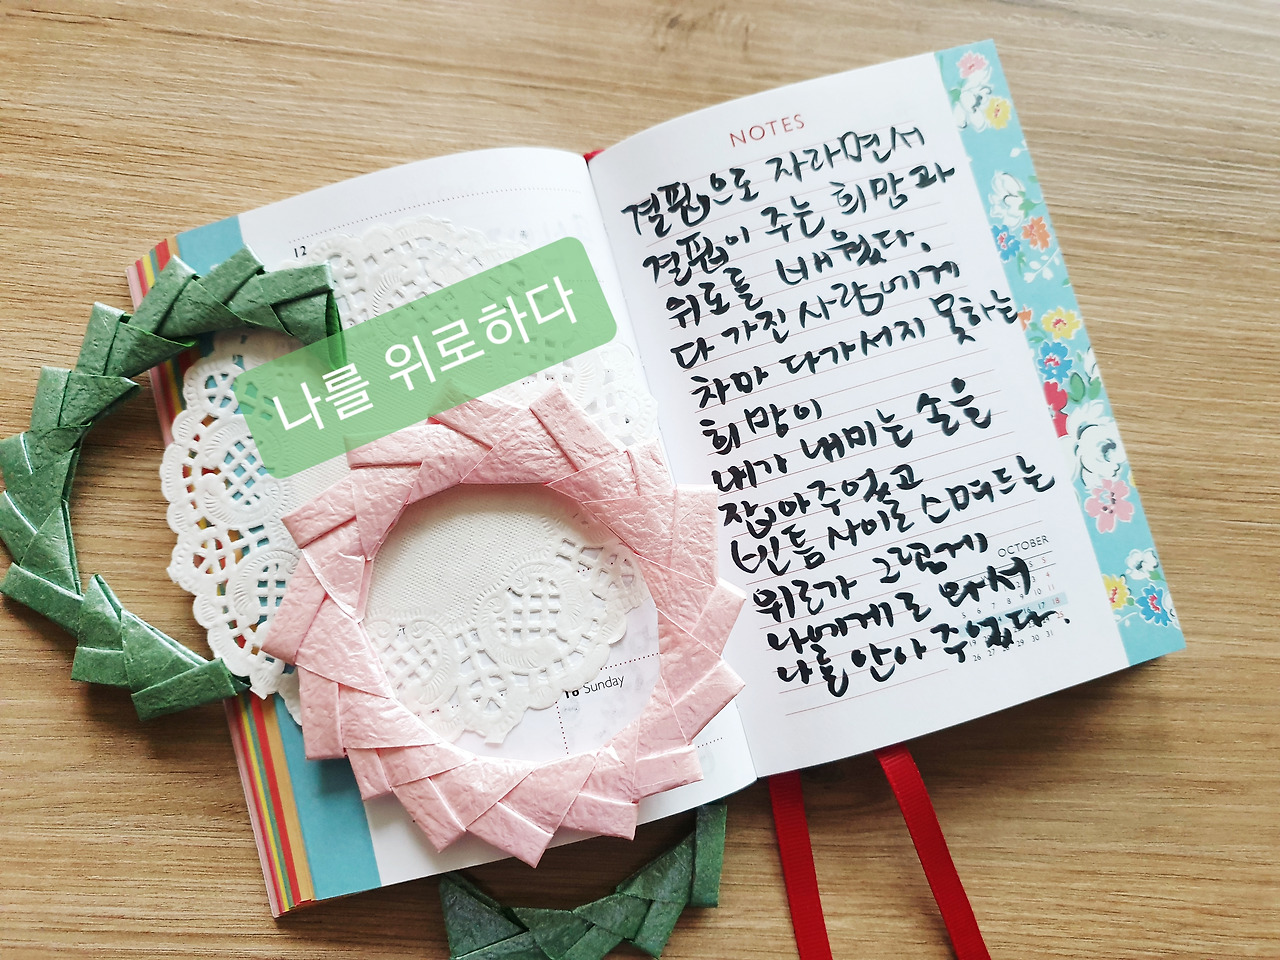 12
나를 위로하다
16 Sunday
NOTES
결핍으로 자라면서
결핍이 주는 희망과
위로를 배웠다.
다 가진 사람에게
차마 다가서지 못하는
희망이
내가 내미는 손을
잡아주었고
빈틈 사이로 스며드는
위로가 그렇게
나에게로 와서
나를 안아 주었다.
OCTOBER